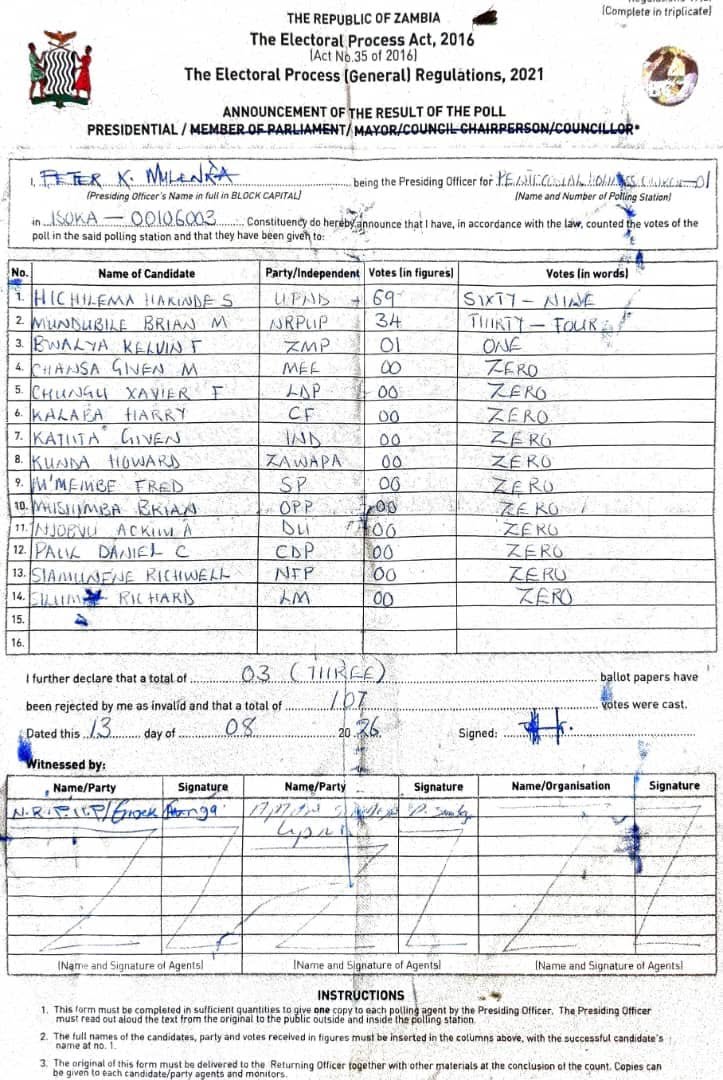 (Complete in triplicate)
THE REPUBLIC OF ZAMBIA
The Electoral Process Act, 2016
(Act No.35 of 2016)
The Electoral Process (General) Regulations, 2021
ANNOUNCEMENT OF THE RESULT OF THE POLL
PRESIDENTIAL / MEMBER OF PARLIAMENT/ MAYOR/COUNCIL CHAIRPERSON/COUNCILLOR*
I, PETER K. being the Presiding Officer for 01
(Presiding Officer's Name in full in BLOCK CAPITAL) (Name and Number of Polling Station)
in ISOKA — 00106003 Constituency do hereby announce that I have, in accordance with the law, counted the votes of the
poll in the said polling station and that they have been given to:
No. Name of Candidate Party/Independent Votes (in figures) Votes (in words)
1. HICHILEMA HAKINDE S UPND 69 SIXTY - NINE
2. MUNDUBILE BRIAN M NRPUP 34 THIRTY - FOUR
3. BWALYA KELVIN F ZMP 01 ONE
4. CHANSA GIVEN M MEE 00 ZERO
5. CHUNGU XAVIER F LDP 00 ZERO
6. KALABA HARRY CF 00 ZERO
7. KATUTA GIVEN IND 00 ZERO
8. KUNDA HOWARD ZAWAPA 00 ZERO
9. M'MEMBE FRED SP 00 ZERO
10. MUSHIMBA BRIAN OPP 00 ZERO
11. NJOBVU ACKIM A DU 00 ZERO
12. DANIEL C CDP 00 ZERO
13. SIAMUNENE RICHWELL NFP 00 ZERO
14. RICHARD LM 00 ZERO
15.
16.
I further declare that a total of 03 (THREE) ballot papers have
been rejected by me as invalid and that a total of 107 votes were cast.
Dated this 13 day of 08 2026. Signed:
Witnessed by:
Name/Party Signature Name/Party Signature Name/Organisation Signature
(Name and Signature of Agents) (Name and Signature of Agents) (Name and Signature of Agents)
INSTRUCTIONS
1. This form must be completed in sufficient quantities to give one copy to each polling agent by the Presiding Officer. The Presiding Officer
must read out aloud the text from the original to the public outside and inside the polling station.
2. The full names of the candidates, party and votes received in figures must be inserted in the columns above, with the successful candidate's
name at no. 1.
3. The original of this form must be delivered to the Returning Officer together with other materials at the conclusion of the count. Copies can
be given to each candidate/party agents and monitors.